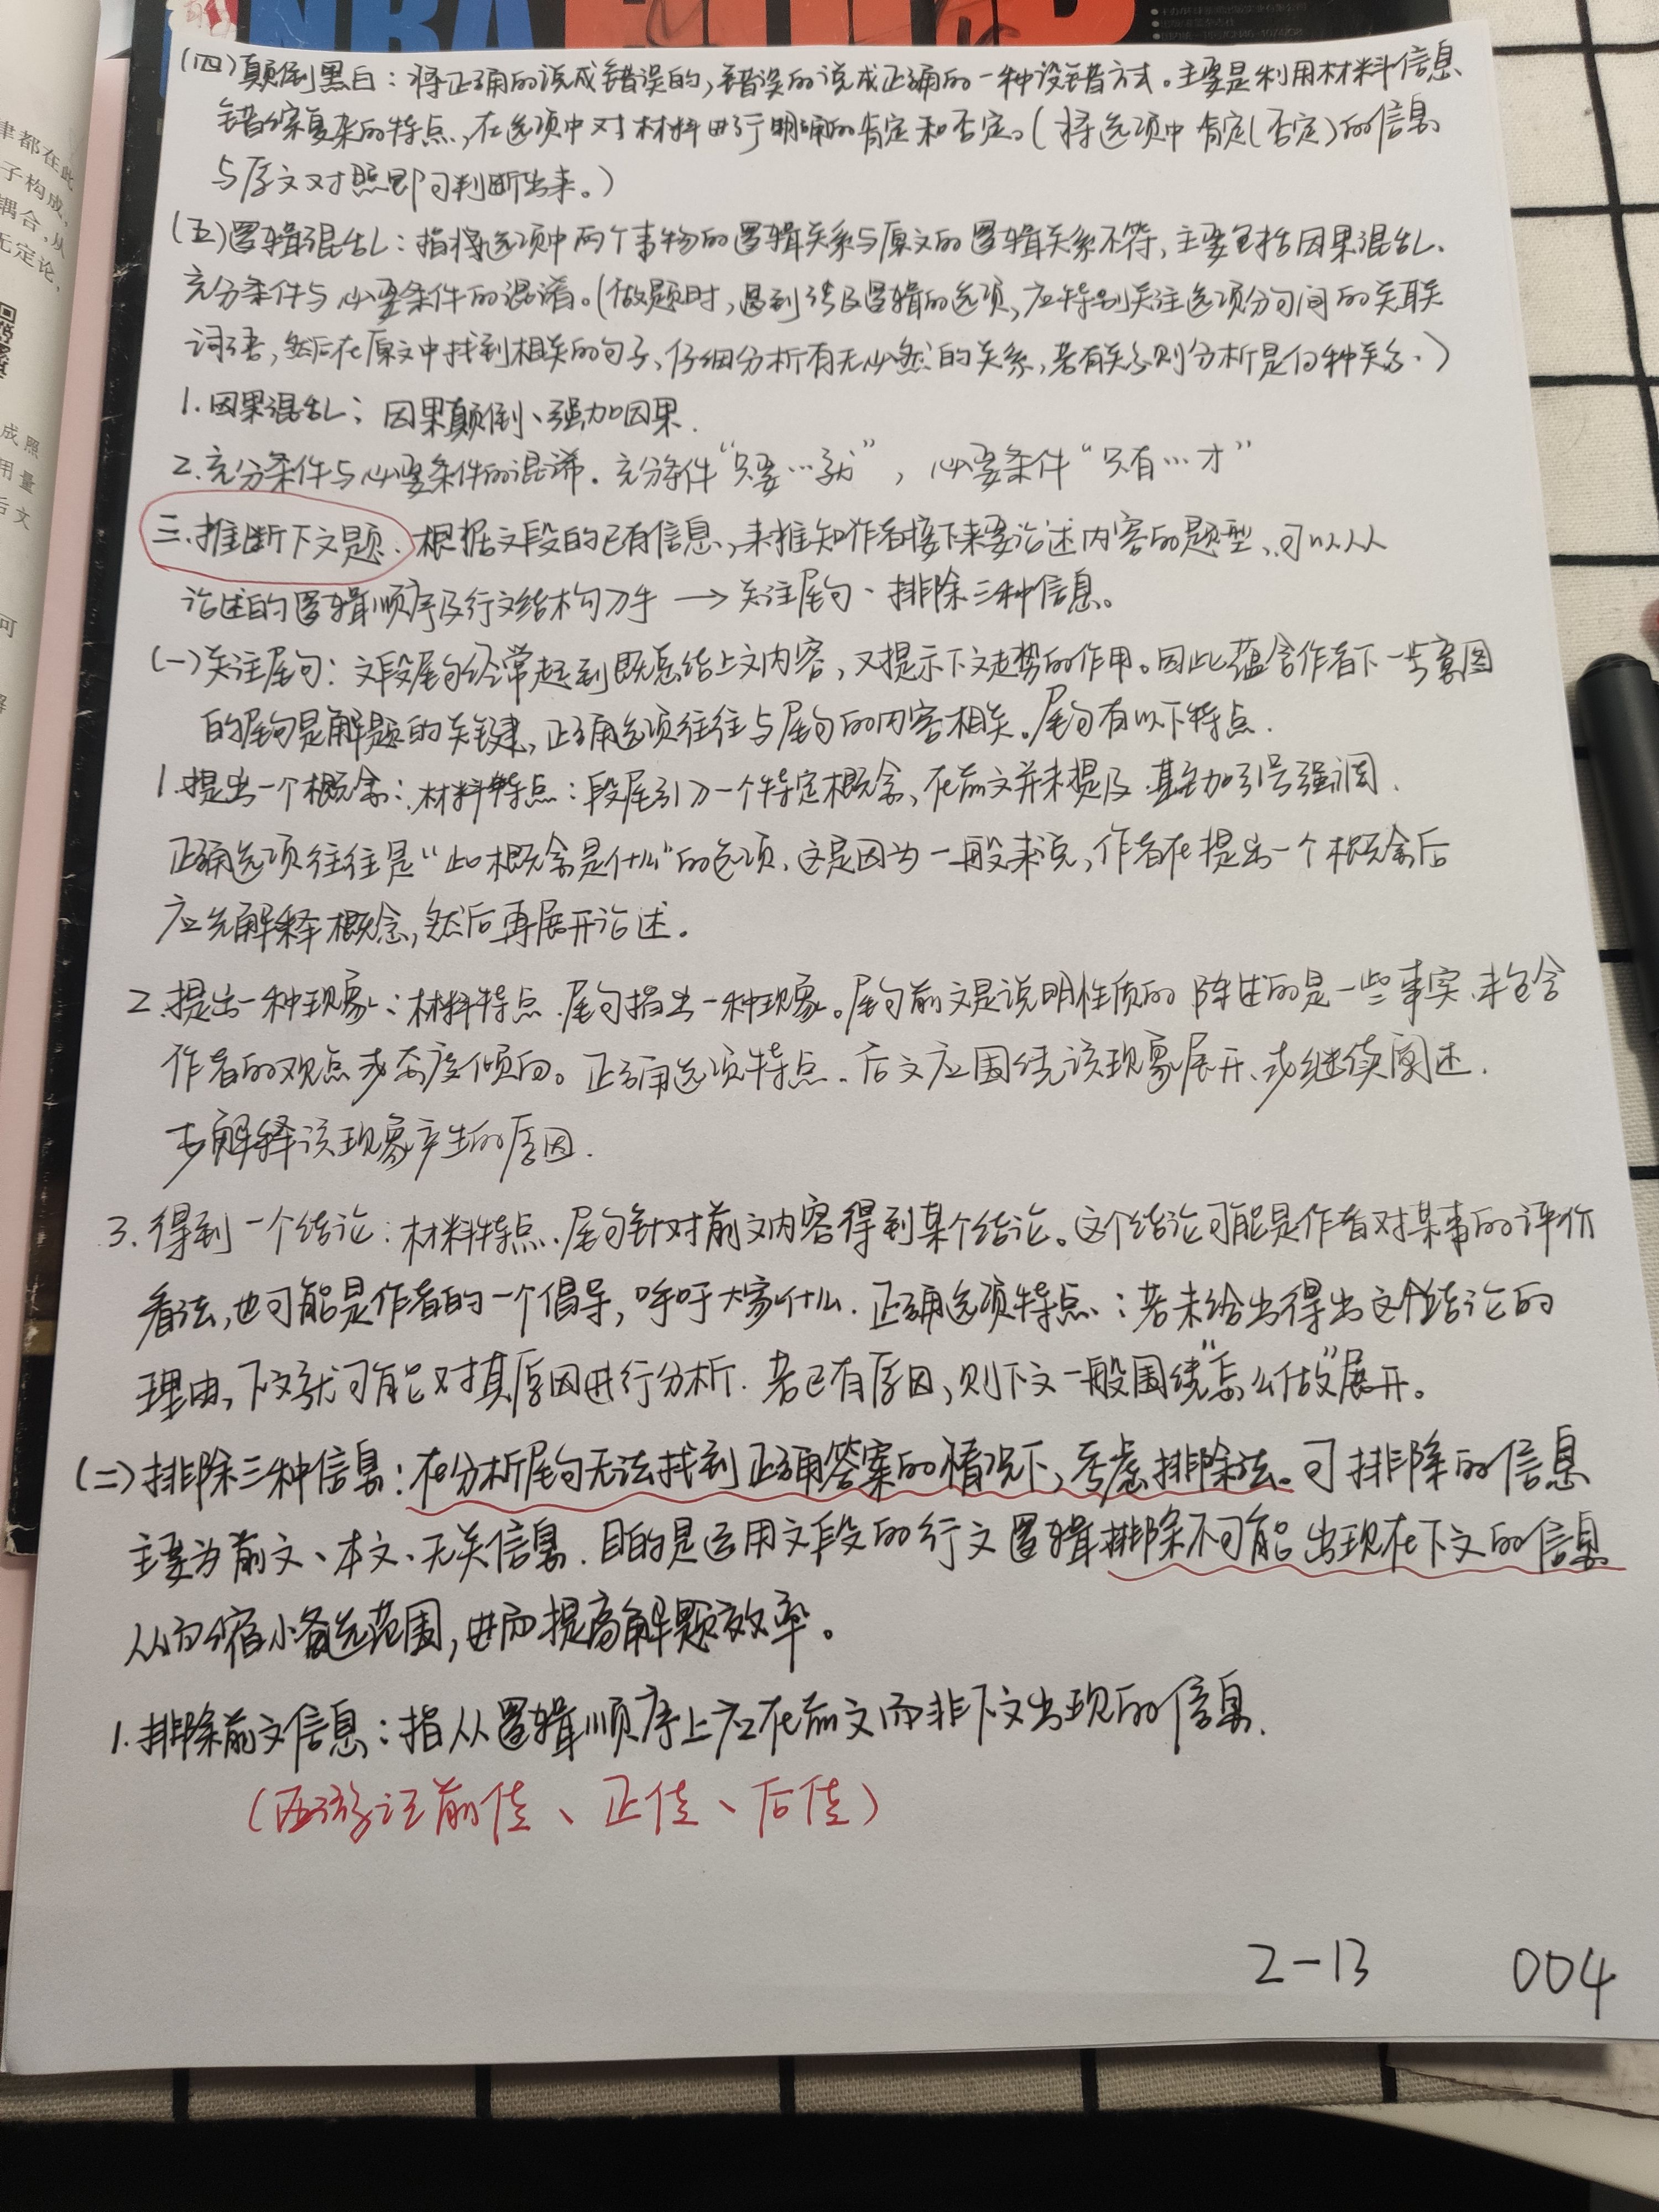 (四)颠倒黑白：将正确的说成错误的，错误的说成正确的一种设错方式。主要是利用材料信息
错综复杂的特点，在选项中对材料进行明确的肯定和否定。(将选项中肯定(否定)的信息
与原文对照即可判断出来。)
(五)逻辑混乱：指将选项中两个事物的逻辑关系与原文的逻辑关系不符，主要包括因果混乱、
充分条件与必要条件的混淆。(做题时，遇到涉及逻辑的选项，应特别关注选项分句间的关联
词语，然后在原文中找到相关的句子，仔细分析有无必然的关系，若有关系则分析是何种关系.)
1.因果混乱：因果颠倒、强加因果.
2.充分条件与必要条件的混淆.充分条件"只要…就"，必要条件"只有…才"
三.推断下文题.根据文段的已有信息，来推知作者接下来要论述内容的题型，可以从
论述的逻辑顺序及行文结构入手 → 关注尾句、排除三种信息。
(一)关注尾句：文段尾句经常起到既总结上文内容，又提示下文走势的作用。因此蕴含作者下一步意图
的尾句是解题的关键，正确选项往往与尾句的内容相关。尾句有以下特点.
1.提出一个概念：材料特点：段尾引入一个特定概念，在前文并未提及.甚至加引号强调.
正确选项往往是"此概念是什么"的选项.这是因为一般来说，作者在提出一个概念后
应先解释概念，然后再展开论述。
2.提出一种现象：材料特点.尾句指出一种现象。尾句前文是说明性质的 陈述的是一些事实.未包含
作者的观点或态度倾向。正确选项特点.后文应围绕该现象展开、或继续阐述.
或解释该现象产生的原因.
3.得到一个结论：材料特点.尾句针对前文内容得到某个结论。这个结论可能是作者对某事的评价
看法，也可能是作者的一个倡导，呼吁大家什么.正确选项特点：若未给出得出这个结论的
理由，下文就可能对其原因进行分析.若已有原因，则下文一般围绕"怎么做"展开。
(二)排除三种信息：在分析尾句无法找到正确答案的情况下，考虑排除法。可排除的信息
主要为前文、本文、无关信息.目的是运用文段的行文逻辑排除不可能出现在下文的信息
从而缩小备选范围，进而提高解题效率。
1.排除前文信息：指从逻辑顺序上应在前文而非下文出现的信息.
(西游记前传、正传、后传)
2-13 004
津都在此
子构成，
耦合，从
无定论，
成照
用量
后文
可